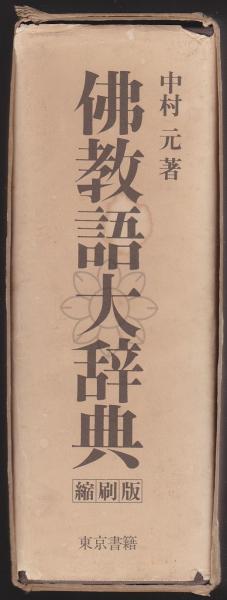 中村 元 著
佛教語大辞典
縮刷版
東京書籍